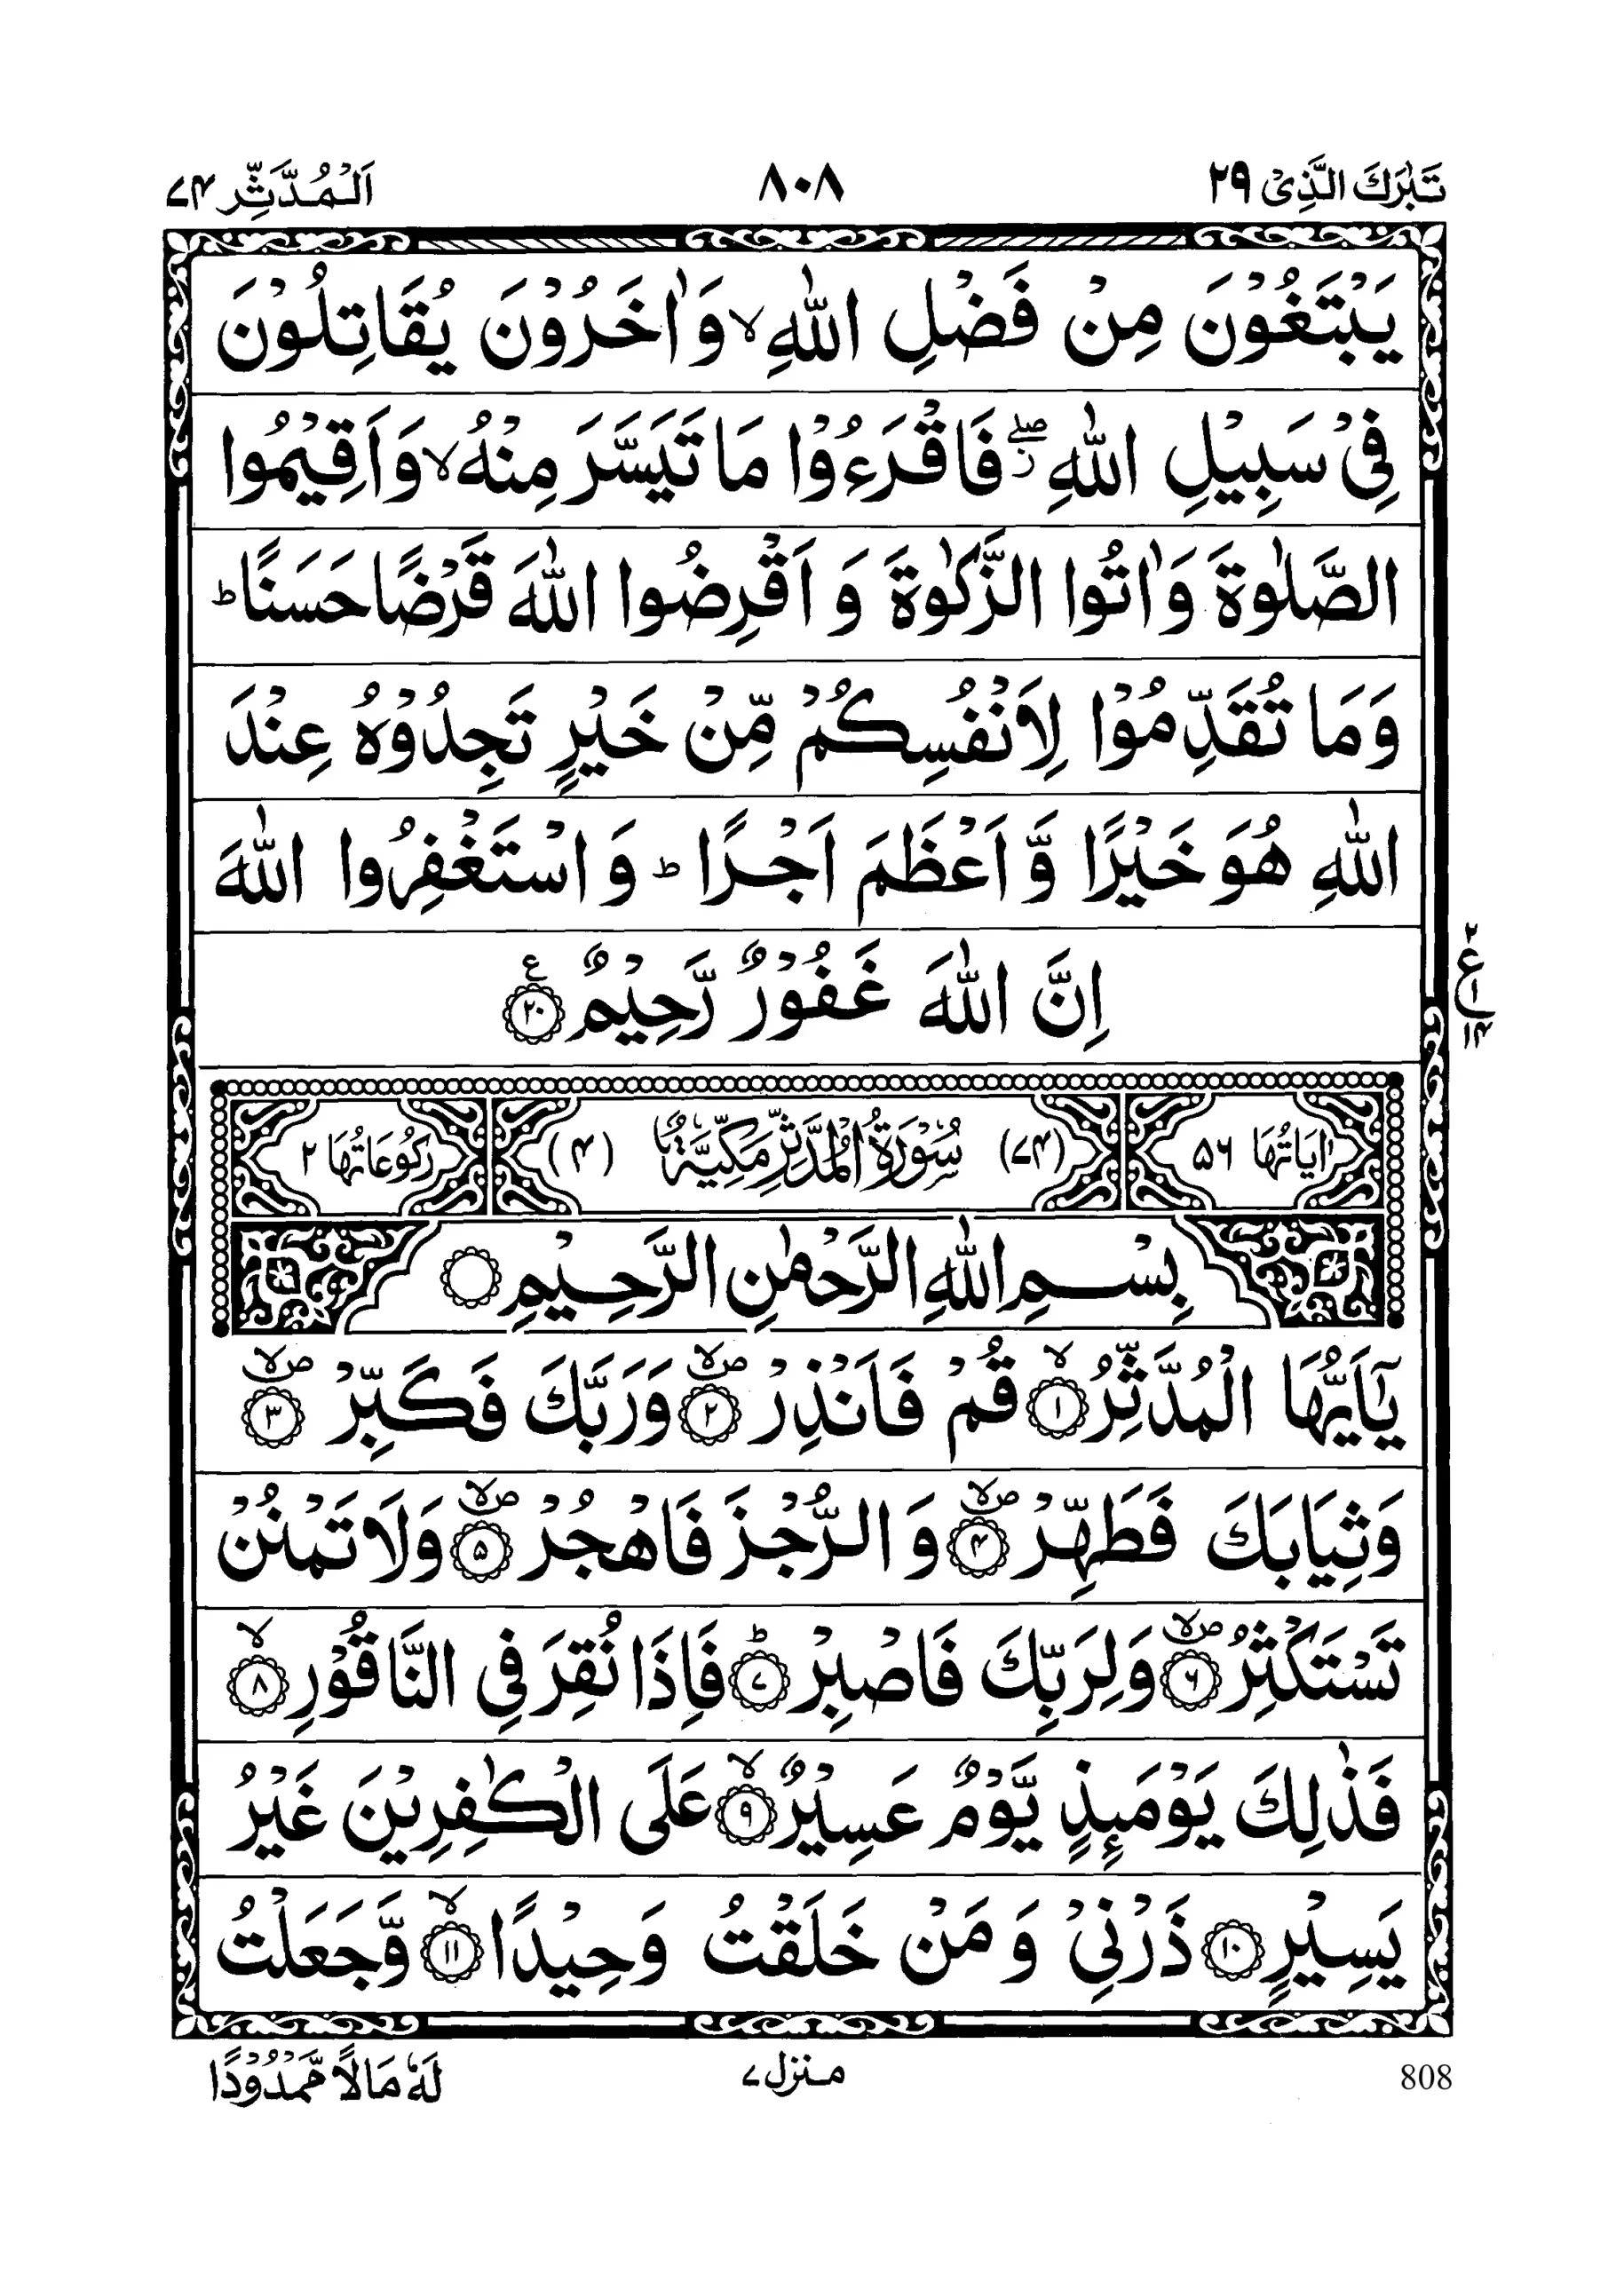 تَبٰرَكَ الَّذِیْ ۲۹ ۸۰۸ اَلْمُدَّثِّر ۷۴
يَبْتَغُوْنَ مِنْ فَضْلِ اللّٰهِ ۙ وَاٰخَرُوْنَ يُقَاتِلُوْنَ
فِیْ سَبِيْلِ اللّٰهِ ۖ ز فَاقْرَءُوْا مَا تَيَسَّرَ مِنْهُ ۙ وَاَقِيْمُوا
الصَّلٰوةَ وَاٰتُوا الزَّكٰوةَ وَ اَقْرِضُوا اللّٰهَ قَرْضًا حَسَنًا ؕ
وَمَا تُقَدِّمُوْا لِاَنْفُسِكُمْ مِّنْ خَيْرٍ تَجِدُوْهُ عِنْدَ
اللّٰهِ هُوَ خَيْرًا وَّ اَعْظَمَ اَجْرًا ؕ وَ اسْتَغْفِرُوا اللّٰهَ
اِنَّ اللّٰهَ غَفُوْرٌ رَّحِيْمٌ ﴿۲۰﴾ ع
۲ ع ۱۴
اٰيَاتُهَا ۵۶ (۷۴) سُوْرَةُ الْمُدَّثِّرِ مَكِّيَّةٌ (۴) رُكُوْعَاتُهَا ۲
بِسْمِ اللّٰهِ الرَّحْمٰنِ الرَّحِيْمِ
يٰۤاَيُّهَا الْمُدَّثِّرُ ۙ﴿۱﴾ قُمْ فَاَنْذِرْ ۪ۙ﴿۲﴾ وَرَبَّكَ فَكَبِّرْ ۪ۙ﴿۳﴾
وَثِيَابَكَ فَطَهِّرْ ۪ۙ﴿۴﴾ وَ الرُّجْزَ فَاهْجُرْ ۪ۙ﴿۵﴾ وَلَا تَمْنُنْ
تَسْتَكْثِرُ ۪ۙ﴿۶﴾ وَلِرَبِّكَ فَاصْبِرْ ؕ﴿۷﴾ فَاِذَا نُقِرَ فِی النَّاقُوْرِ ۙ﴿۸﴾
فَذٰلِكَ يَوْمَىِٕذٍ يَّوْمٌ عَسِيْرٌ ۙ﴿۹﴾ عَلَى الْكٰفِرِيْنَ غَيْرُ
يَسِيْرٍ ﴿۱۰﴾ ذَرْنِیْ وَ مَنْ خَلَقْتُ وَحِيْدًا ۙ﴿۱۱﴾ وَّجَعَلْتُ
لَهٗ مَالًا مَّمْدُوْدًا
منزل ۷
808